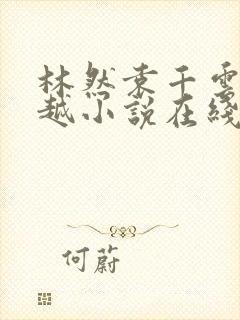 林然秦千雪
越小說在綫
何蔚